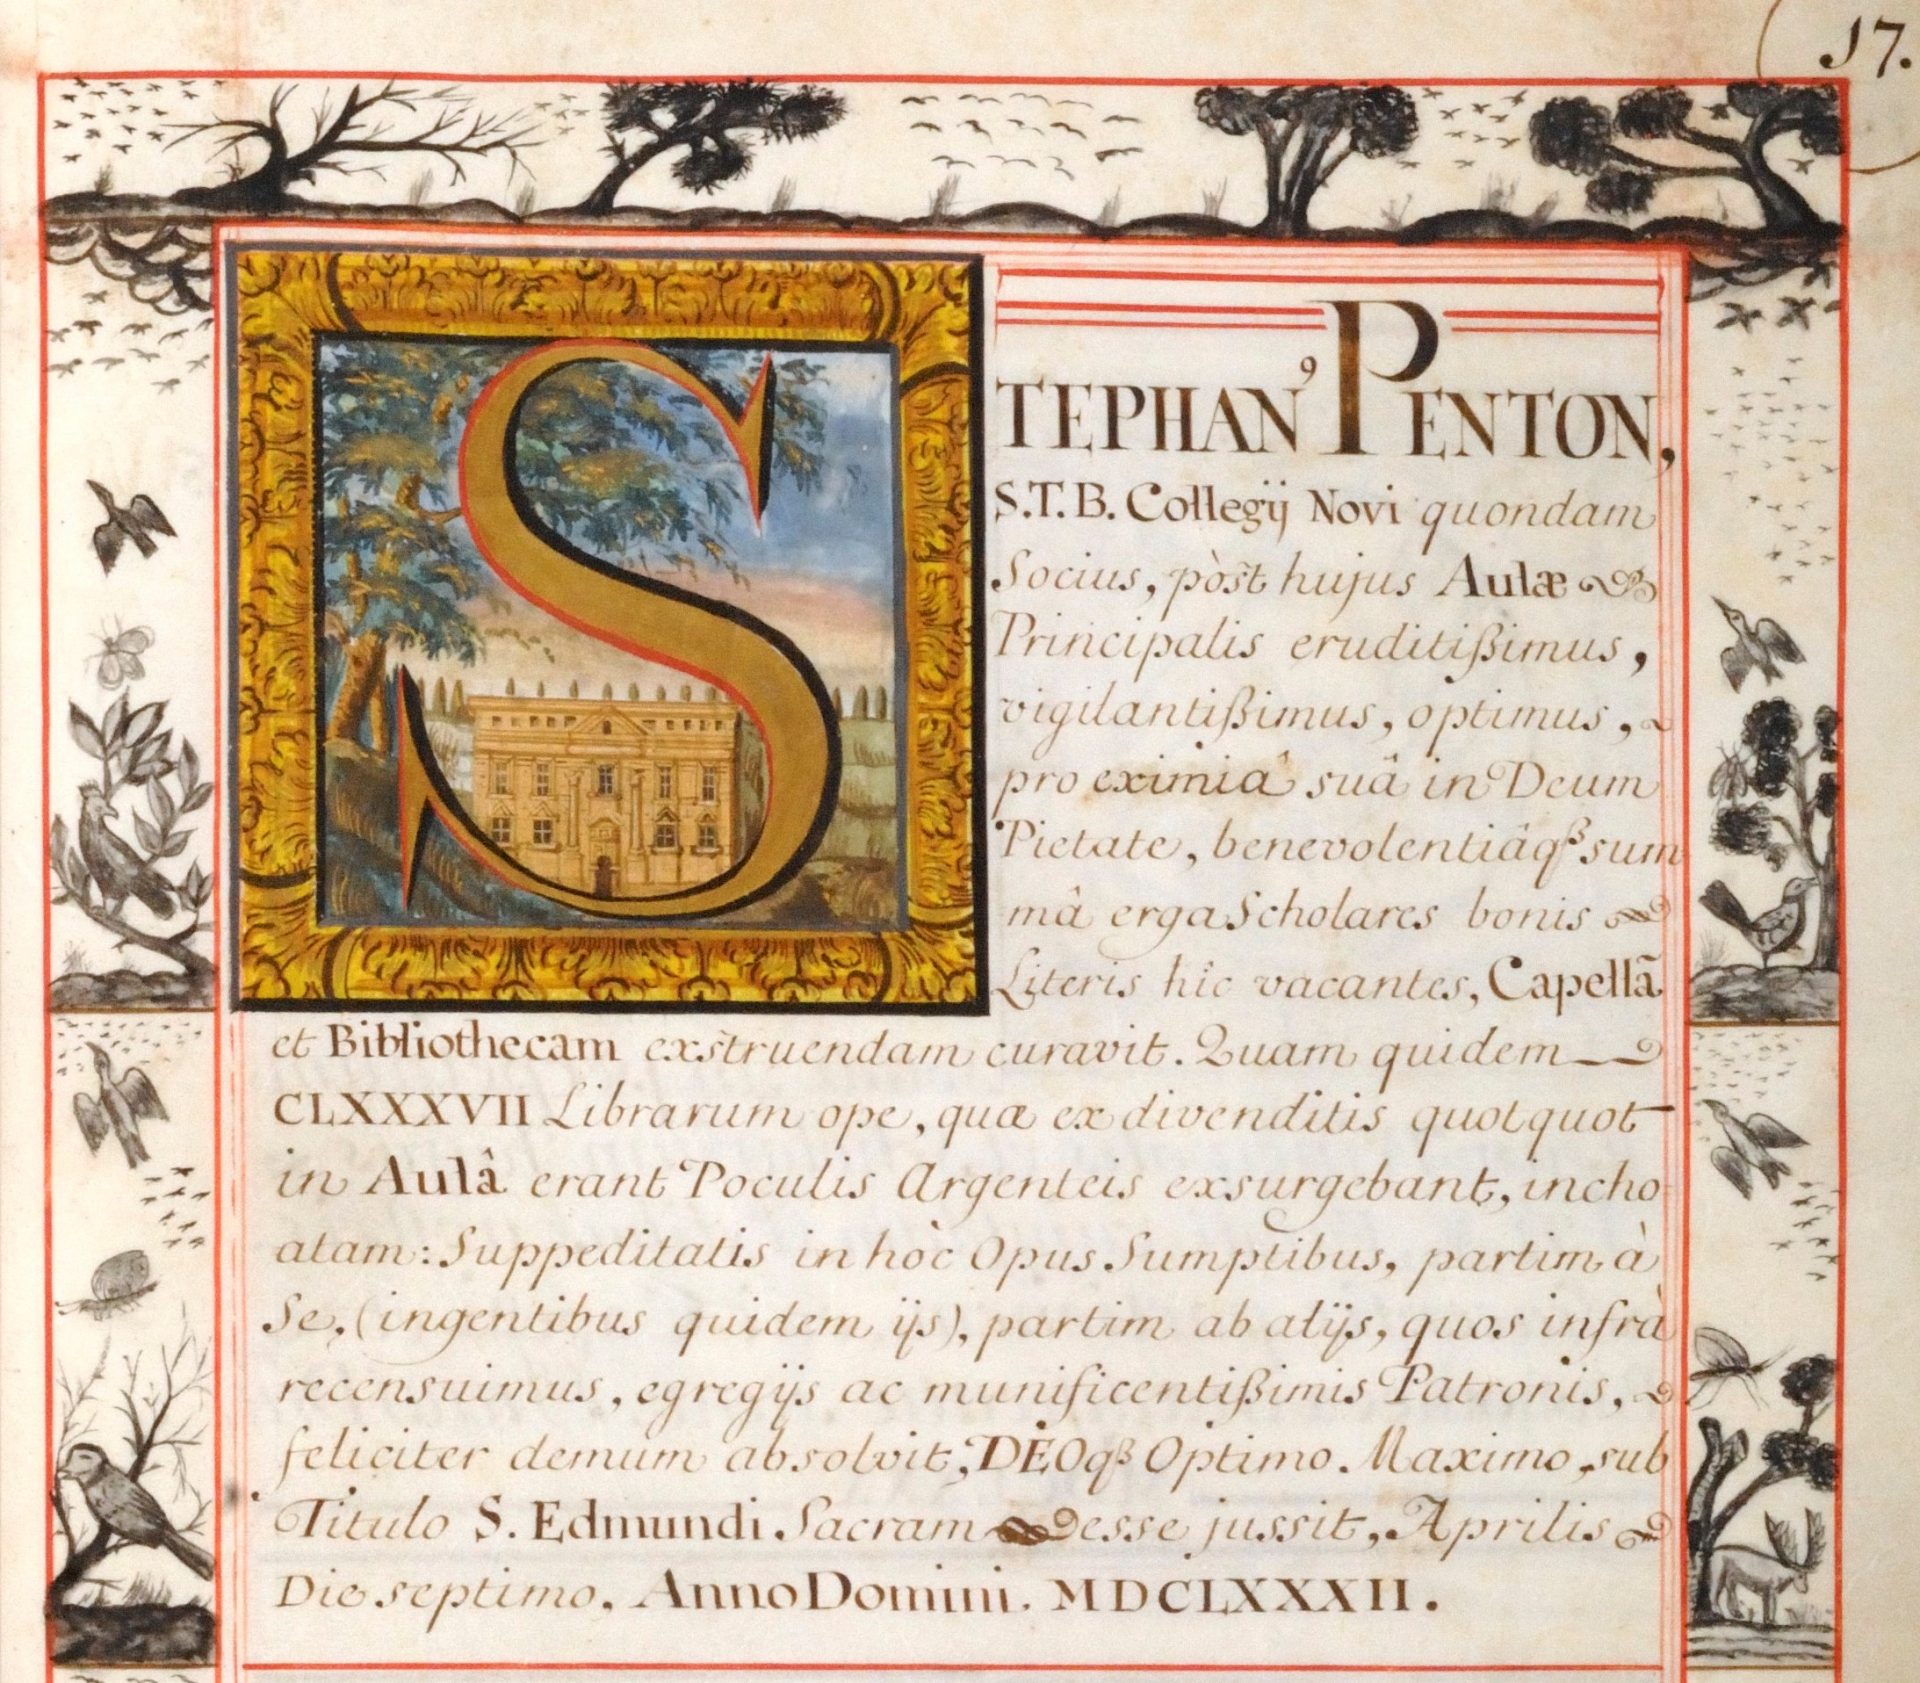 17.
STEPHAN⁹ PENTON,
S.T.B. Collegij Novi quondam
Socius, pòst hujus Aulæ
Principalis eruditißimus,
vigilantißimus, optimus,
pro eximiâ suâ in Deum
Pietate, benevolentiâqꝫ sum
mâ erga Scholares bonis
Literis hîc vacantes, Capellã
et Bibliothecam exstruendam curavit. Quam quidem
CLXXXVII Librarum ope, quæ ex divenditis quotquot
in Aulâ erant Poculis Argenteis exsurgebant, incho
atam: Suppeditatis in hòc Opus Sumptibus, partim à
Se, (ingentibus quidem ijs), partim ab alijs, quos infrà
recensuimus, egregijs ac munificentißimis Patronis,
feliciter demum absolvit, DEOqꝫ Optimo Maximo, sub
Titulo S. Edmundi Sacram esse jussit, Aprilis
Die septimo, Anno Domini. MDCLXXXII.